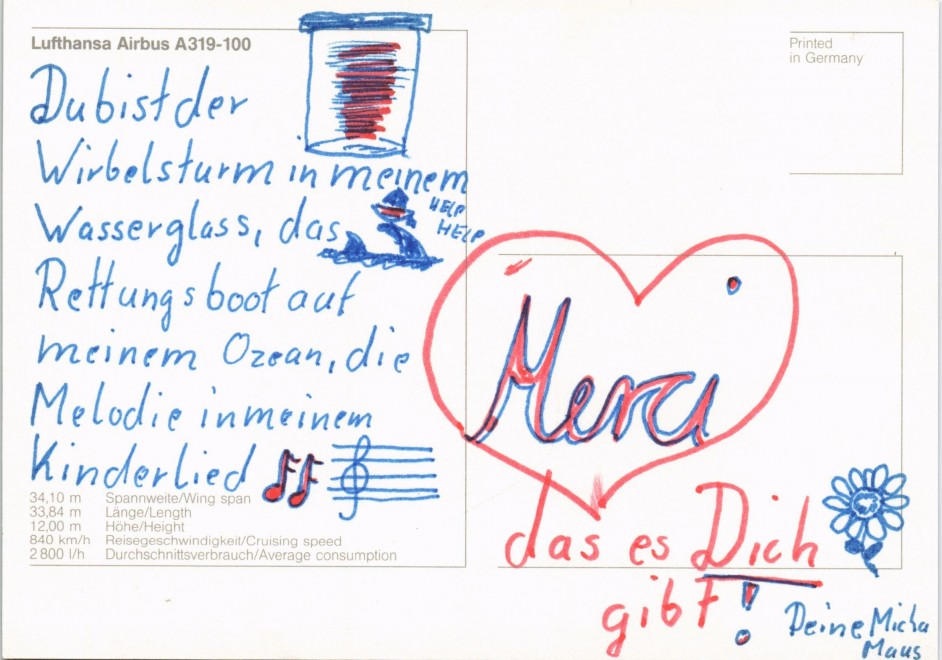 Lufthansa Airbus A319-100
Printed
in Germany
Du bist der
Wirbelsturm in meinem
Wasserglass, das
HELP
HELP
Rettungsboot auf
meinem Ozean, die
Melodie in meinem
Kinderlied
34,10 m Spannweite/Wing span
33,84 m Länge/Length
12,00 m Höhe/Height
840 km/h Reisegeschwindigkeit/Cruising speed
2 800 l/h Durchschnittsverbrauch/Average consumption
Merci
das es Dich
gibt!
Deine Micha
Maus